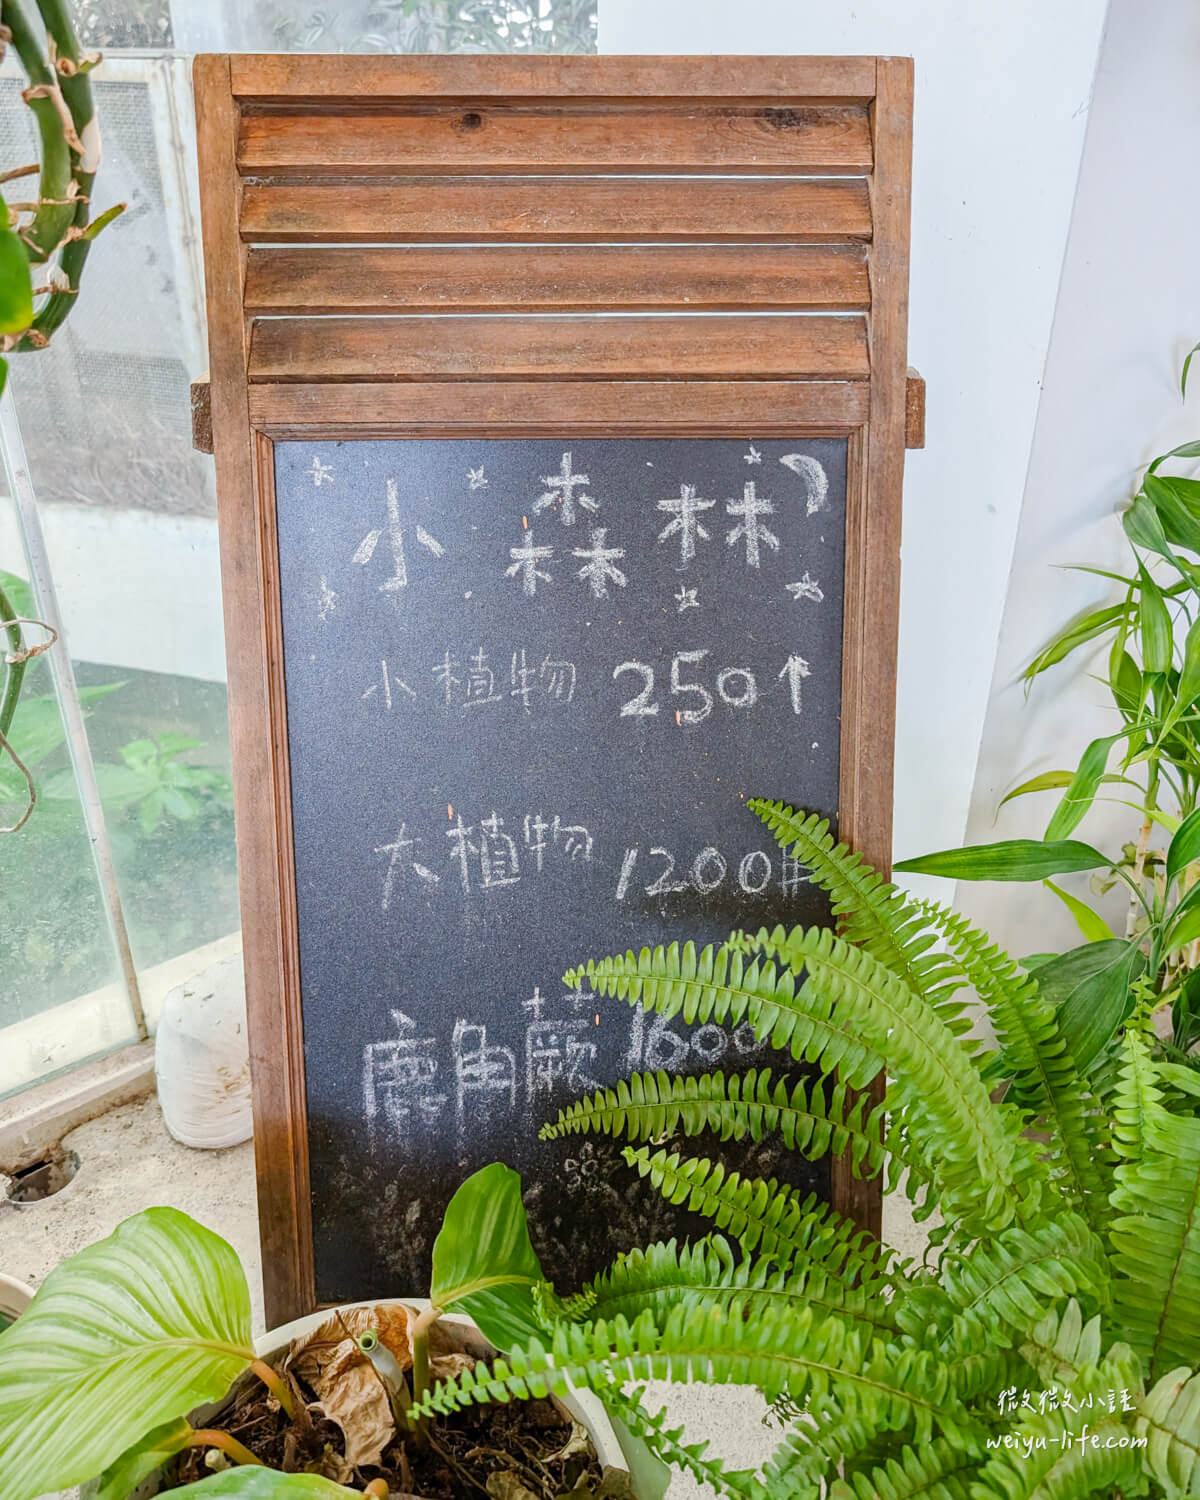 小森林
小植物 250↑
大植物 1200
鹿角蕨 1600
微微小語
weiyu-life.com